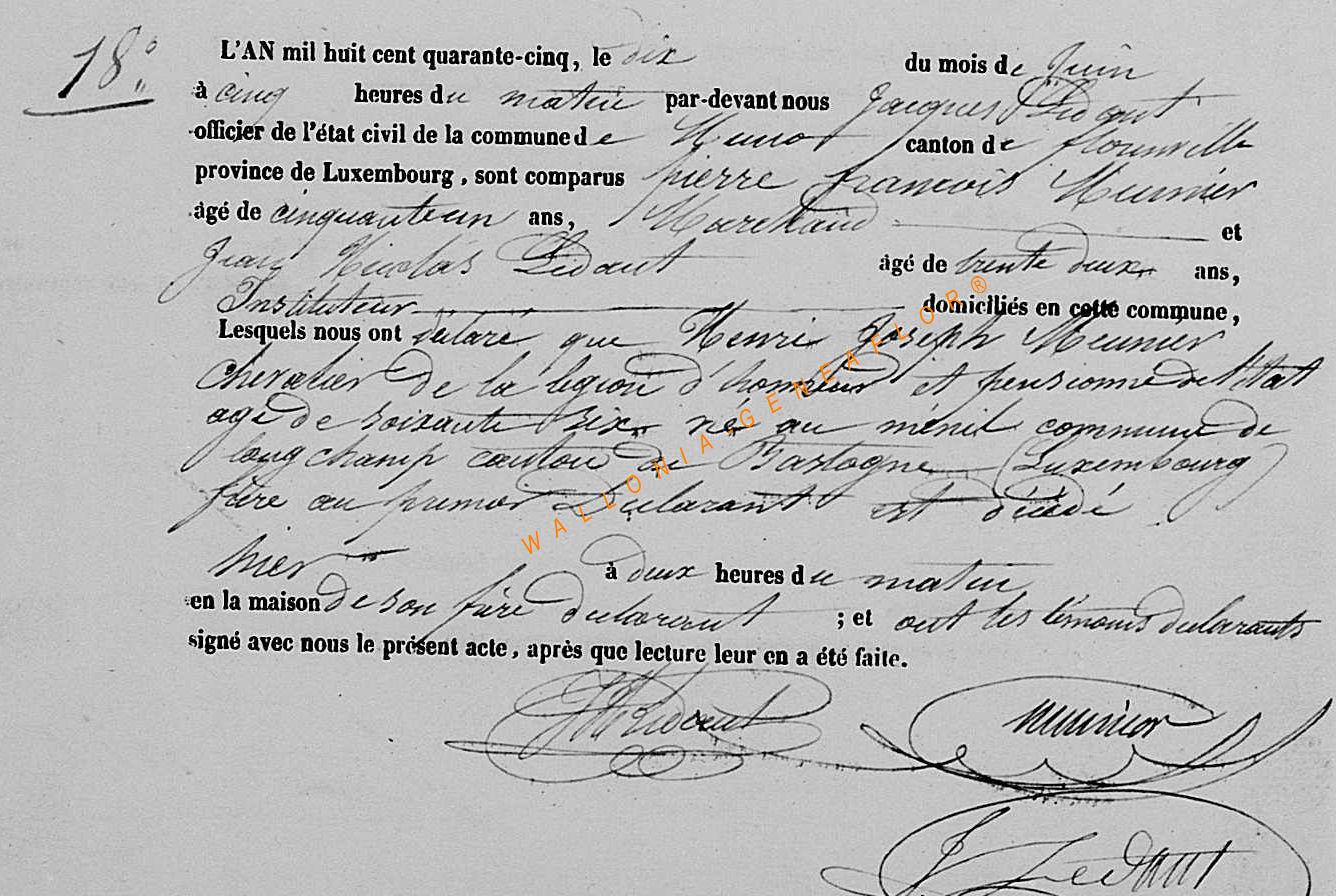 18°
L'AN mil huit cent quarante-cinq, le dix du mois de Juin
à cinq heures du matin par-devant nous Jacques Lédant
officier de l'état civil de la commune de Muno canton de florenville
province de Luxembourg, sont comparus pierre françois Meunier
âgé de cinquante un ans, Marchand et
Jean Nicolas Lédant âgé de trente deux ans,
Instituteur domiciliés en cette commune,
Lesquels nous ont déclaré que Henri Joseph Meunier
chevalier de la légion d'honneur et pensionné de l'état
agé de soixante six né au ménil commune de
longchamp canton de Bastogne (Luxembourg)
frère au premier Déclarant est décédé
hier à deux heures du matin
en la maison de son frère déclarant ; et ont les témoins déclarants
signé avec nous le présent acte, après que lecture leur en a été faite.
Lédant meunier
J Lédant
WALLONIA-GENEAFLOR®